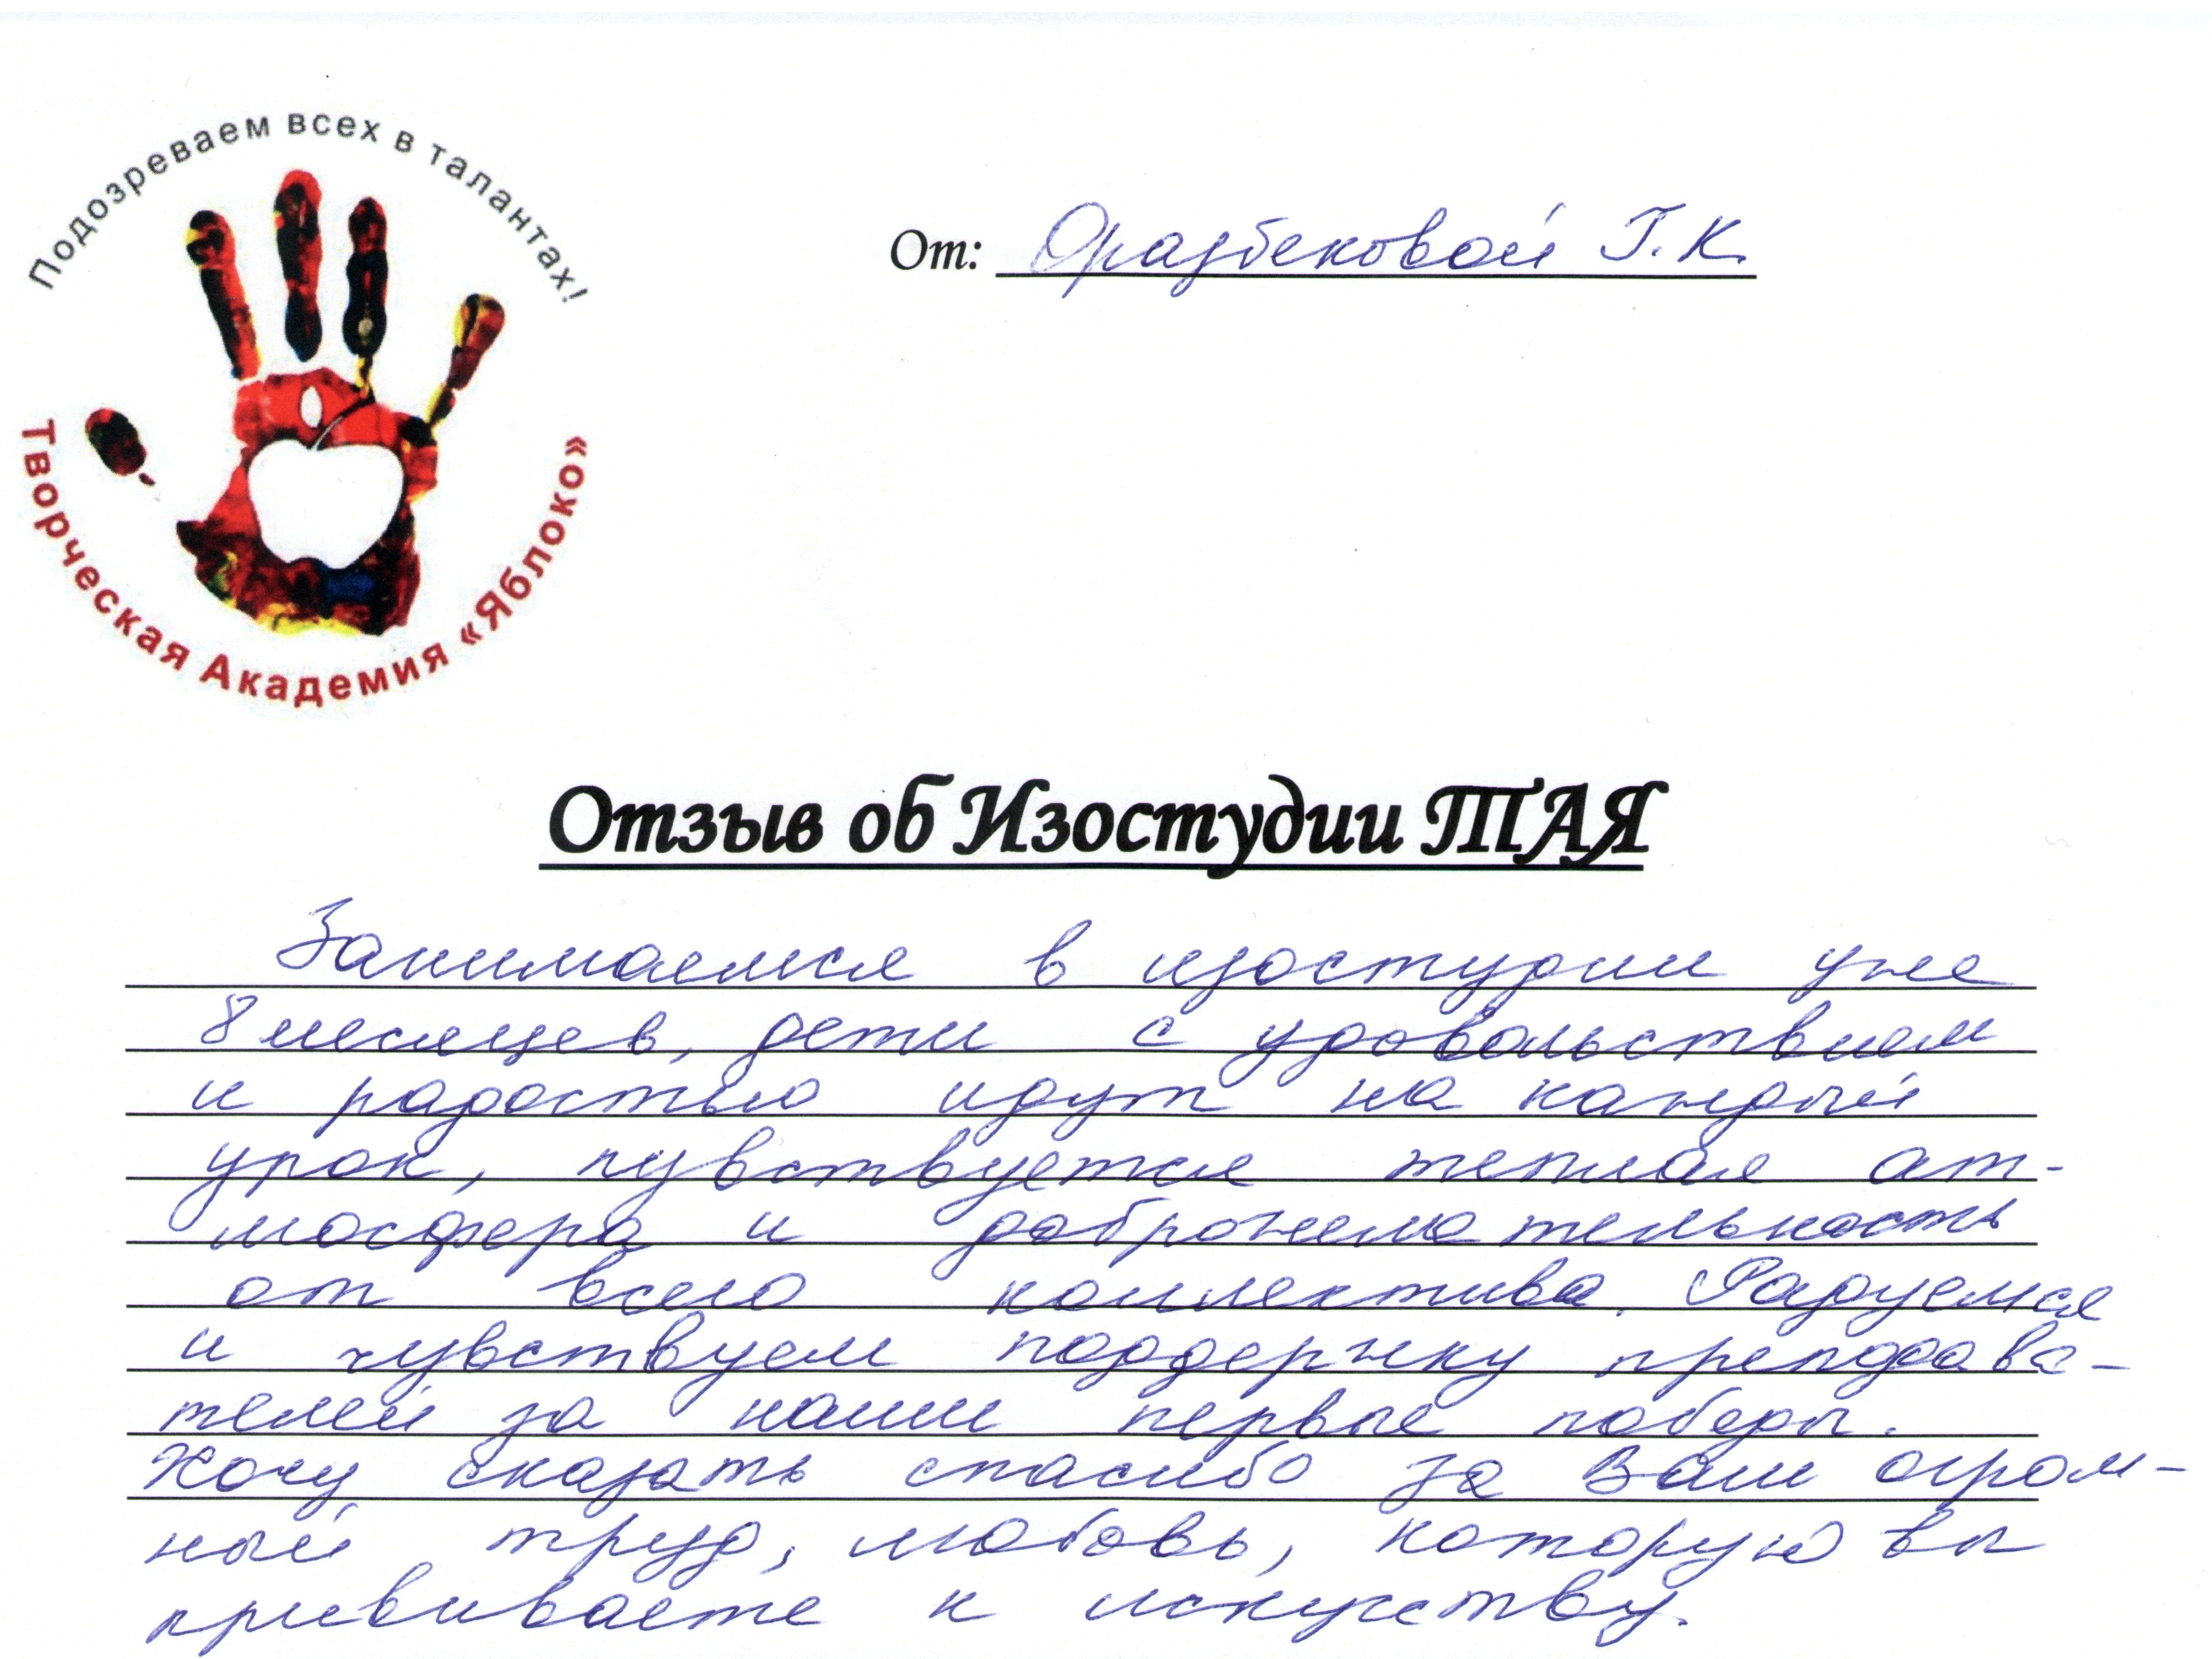 Подозреваем всех в талантах!
Творческая Академия «Яблоко»
От: Оразбековой Г.К.
Отзыв об Изостудии ТАЯ
Занимаемся в изостудии уже
8 месяцев, дети с удовольствием
и радостью идут на каждый
урок, чувствуется теплая ат-
мосфера и доброжелательность
от всего коллектива. Радуемся
и чувствуем поддержку преподава-
телей за наши первые победы.
Хочу сказать спасибо за Ваш огром-
ный труд, любовь, которую вы
прививаете к искусству.